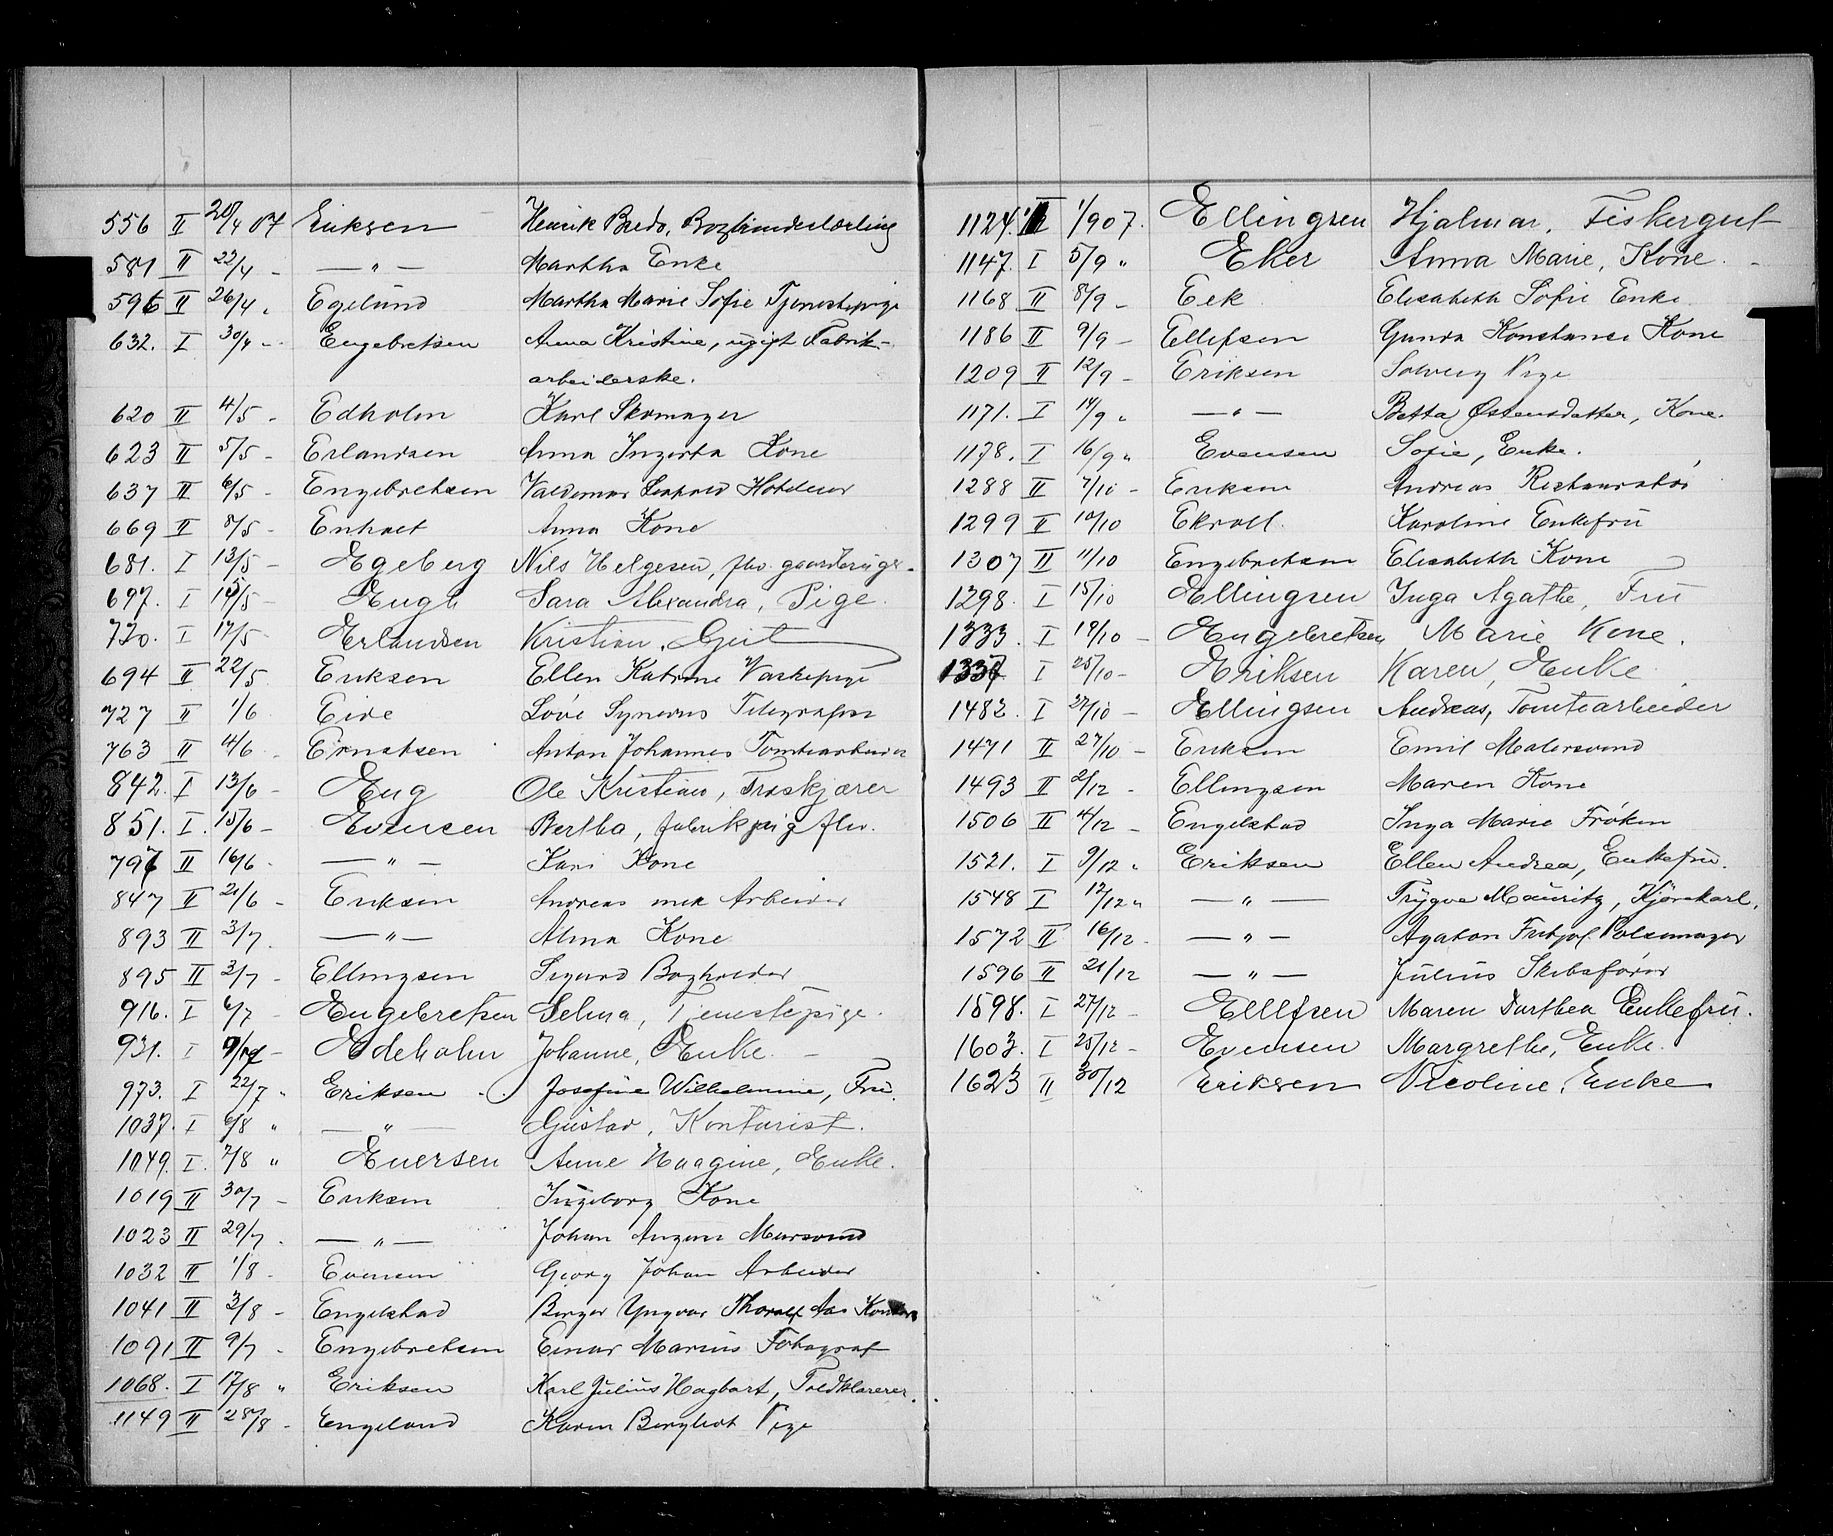 556 II 20/4 07 Eriksen Henrik Bredo, Bogbinderlærling
581 II 22/4 - — " — Martha Enke
596 II 26/4 " Egelund Martha Marie Sofie Tjenestepige
632. I 30/4 - Engebretsen Anna Kristine, ugift Fabrik-
arbeiderske.
620 II 4/5 - Edholm Karl Skomager
623 II 5/5 - Erlandsen Anna Ingerta Kone
637 II 6/5 - Engebretsen Valdemar Leopold Hoteleier
669 II 8/5 - Enholt Anna Kone
681. I 13/5 - Egeberg Nils Helgesen, fhv. gaardbruger.
697. I 15/5 - Engh Sara Alexandra, Pige.
720. I 17/5 - Erlandsen Kristian. Gut
694 II 22/5 Eriksen Ellen Katrine Vaskepige
727 II 1/6 Eide Love Synevas Telegrafist
763 II 4/6 - Ernstsen Anton Johannes Tomtearbeider
842. I 13/6 - Eng Ole Kristian, Træskjærer
851. I. 15/6 - Evensen Bertha, fabrikpige fhv.
797 II 16/6 — " — Kari Kone
847 II 21/6 - Eriksen Andreas mek Arbeider
893 II 3/7. — " — Alma Kone
895 II 3/7 - Ellingsen Sigurd Bogholder
916. I 6/7 - Engebretsen Selma, Tjenestepige.
931. I 9/7 - Edeholm Johanne, Enke. -
973. I 22/7 " Eriksen Josefine Wilhelmine, Fru.
1037. I 6/8 " — " — Gustav, Kontorist.
1049. I. 7/8 " Evensen Anne Haagine, Enke.
1019 II 30/7 - Eriksen Ingeborg Kone
1023 II 29/7 - — " — Johan August Mursvend
1032 II 1/8 - Evensen Georg Johan Arbeider
1041 II 3/8 - Engelstad Birger Yngvar Thoralf Aas
1091 II 9/7 - Engebretsen Einar Marius Fotograf
1068. I 17/8 " Eriksen Karl Julius Hagbart, Toldklarerer.
1149 II 28/8 - Engelund Karen Bergliot Pige
1124. II 1/9 07. Ellingsen Hjalmar, Fiskergut
1147. I 5/9 " Eker Anna Marie, Kone. -
1168 II 8/9 - Eek Elisabeth Sofie Enke
1186 II 9/9 - Ellefsen Gunda Konstance Kone
1209 II 12/9 - Eriksen Solveig Pige
1171. I 14/9 " — " — Betta Østensdatter, Kone.
1178. I 16/9 " Evensen Sofie, Enke.
1288 II 7/10 - Eriksen Andreas Restauratør
1299 II 10/10 Ekroll. Karoline Enkefru
1307 II 11/10 Engebretsen Elisabeth Kone
1298. I 15/10 Ellingsen Inga Agathe, Fru
1333. I 19/10 - Engebretsen Marie Kone.
1337 I 25/10 - Eriksen Karen, Enke
1482. I 27/10 - Ellingsen Andreas, Tomtearbeider
1471 II 27/10 - Eriksen Emil Malersvend
1493 II 2/12 - Ellingsen Maren Kone
1506 II 4/12 - Engelstad Inga Marie Frøken
1521. I 9/12 " Eriksen Ellen Andrea, Enkefru.
1548 I 12/12 " — " — Trygve Mauritz, Kjørekarl.
1572 II 16/12 - — " — Agaton Fritjof. Pølsemager
1596 II 21/12 — " — Julius Skibsfører
1598. I 27/12 - Ellefsen Maren Dorthea Enkefru.
1603. I 25/12 - Evensen Margrethe, Enke.
1623 II 30/12 Eriksen Nicoline, Enke